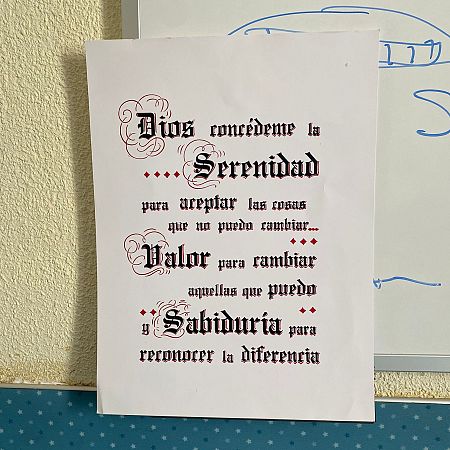 Dios concédeme la
Serenidad
para aceptar las cosas
que no puedo cambiar...
Valor para cambiar
aquellas que puedo
y Sabiduría para
reconocer la diferencia